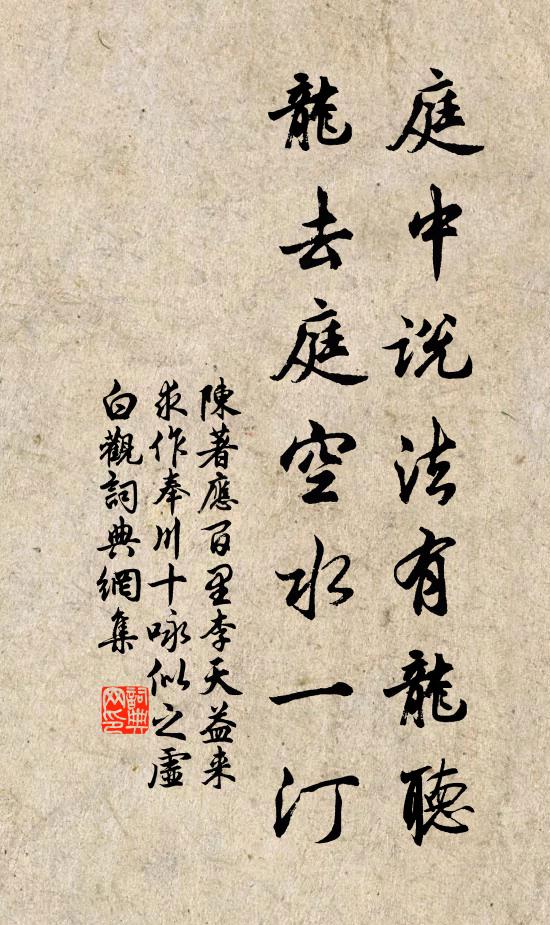 庭中說法有龍聽
龍去庭空水一汀
陳著應百里李天益来
求作奉川十咏似之虛
白觀詞典網集
詞典网印